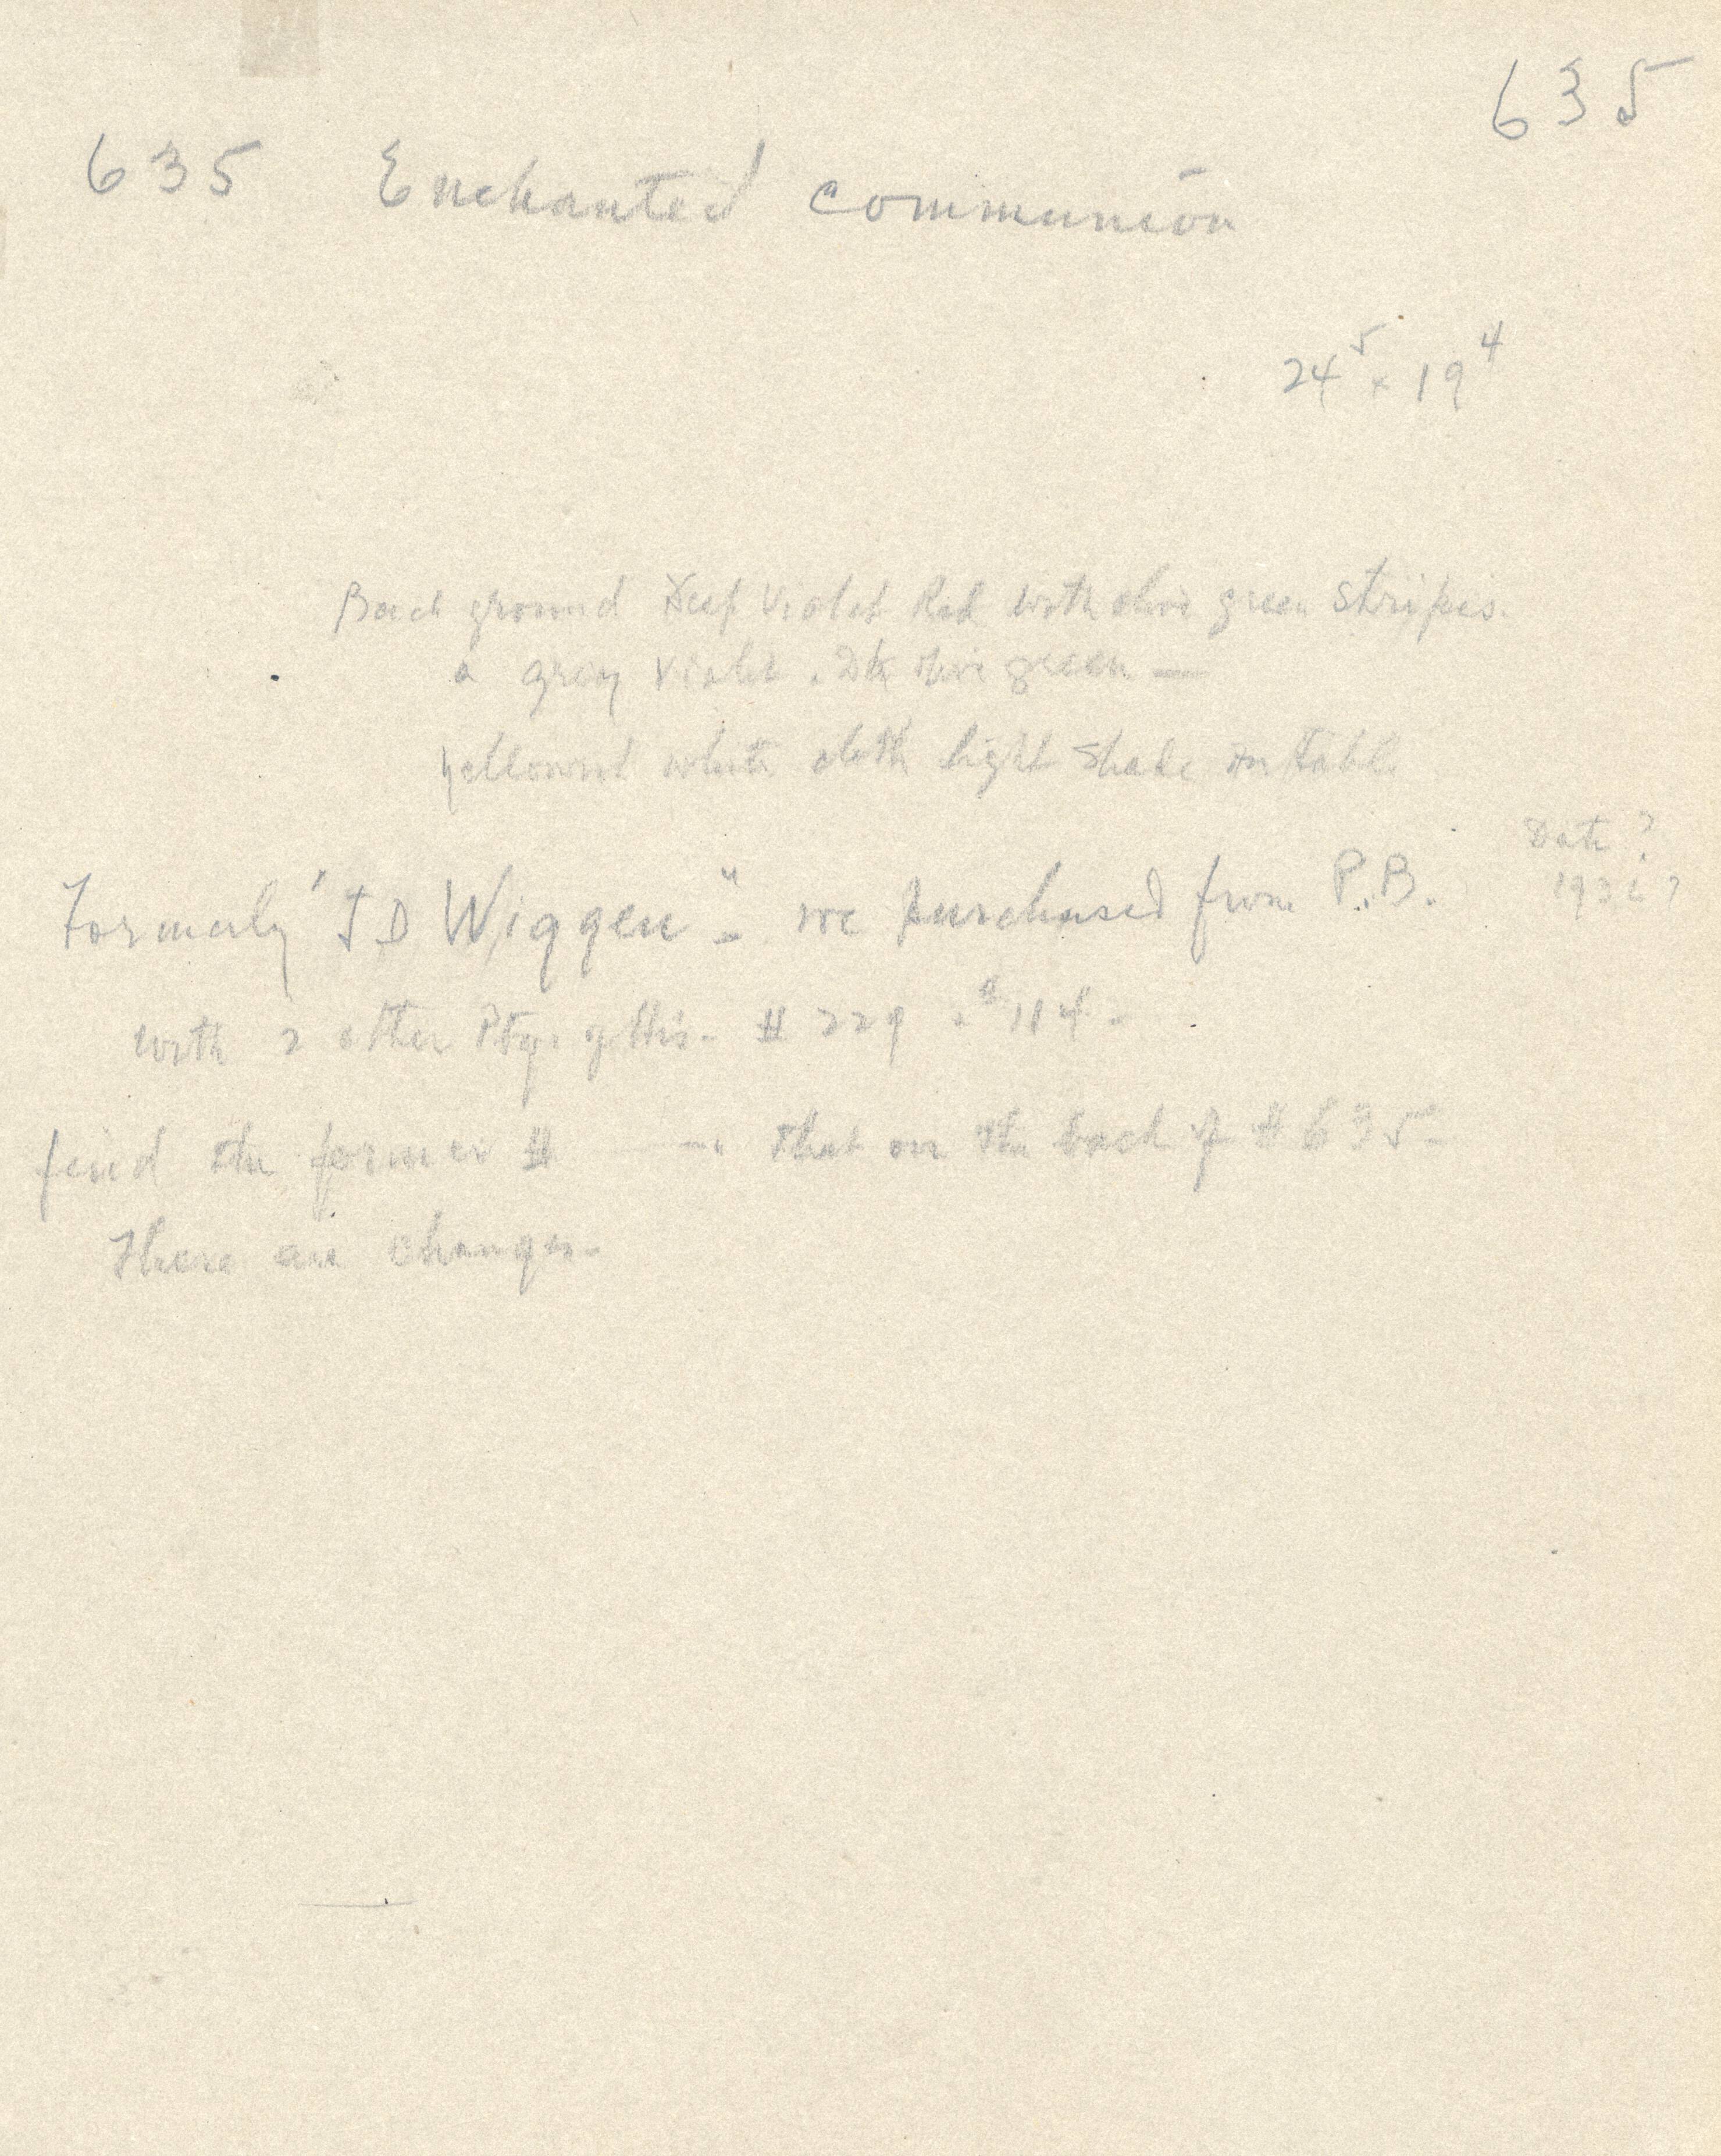 635
635 Enchanted communion
24⁵ x 19⁴
Back ground Deep Violet Red with olive green stripes.
a grey Violet. Dk olive green —
yellowish white cloth light shade on table
Date ?
Formerly "J D Wiggen" - we purchased from P.B. 193 ?
with 2 other Ptgs of His - # 229 - # 114 -
find the former # — that on the back of # 635 -
There are changes -